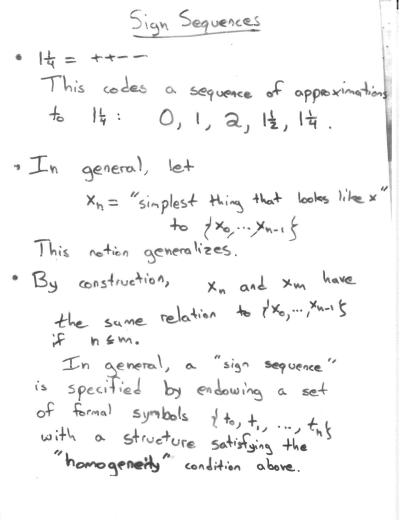 Sign Sequences
• 1¼ = ++--
This codes a sequence of approximations
to 1¼ : 0, 1, 2, 1½, 1¼.
• In general, let
xₙ = "simplest thing that looks like x"
to {x₀,...xₙ₋₁}
This notion generalizes.
• By construction, xₙ and xₘ have
the same relation to {x₀,...,xₙ₋₁}
if n≤m.
In general, a "sign sequence"
is specified by endowing a set
of formal symbols {t₀, t₁, ..., tₙ}
with a structure satisfying the
"homogeneity" condition above.